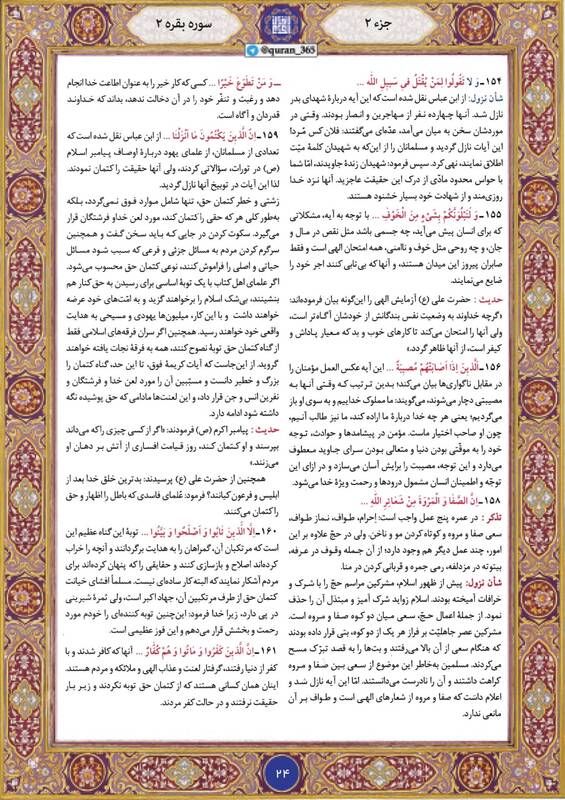 جزء ۲
سوره بقره ۲
@quran_365
۱۵۴ـ وَ لا تَقُولُوا لِمَنْ يُقْتَلُ فِي سَبِيلِ اللّه ...
شأن نزول: از ابن عباس نقل شده است که این آیه دربارهٔ شهدای بدر
نازل شد. آنها چهارده نفر از مهاجرین و انصار بودند. وقتی در
موردشان سخن به میان می‌آمد، عدّه‌ای می‌گفتند: فلان کس مُرد!
این آیات نازل گردید و مسلمانان را از این‌که به شهیدان کلمهٔ میّت
اطلاق نمایند، نهی کرد. سپس فرمود: شهیدان زندهٔ جاویدند، امّا شما
با حواس محدود مادّی از درک این حقیقت عاجزید. آنها نزد خدا
روزی‌مند و از شهادت خود بسیار خشنود هستند.
۱۵۵ـ وَ لَنَبْلُوَنَّكُمْ بِشَيْءٍ مِنَ الْخَوْفِ ... با توجه به آیه، مشکلاتی
که برای انسان پیش می‌آید، چه جسمی باشد مثل نقص در مال و
جان، و چه روحی مثل خوف و ناامنی، همه امتحان الهی است و فقط
صابران پیروز این میدان هستند، و آنها که بی‌تابی کنند اجر خود را
ضایع می‌نمایند.
حدیث : حضرت علی (ع) آزمایش الهی را این‌گونه بیان فرموده‌اند:
«گرچه خداوند به وضعیت نفس بندگانش از خودشان آگاه‌تر است،
ولی آنها را امتحان می‌کند تا کارهای خوب و بد که معیار پاداش و
کیفر است، از آنها ظاهر گردد.»
۱۵۶ـ الَّذِينَ إِذا أَصابَتْهُمْ مُصِيبَةٌ ... این آیه عکس العمل مؤمنان را
در مقابل ناگواری‌ها بیان می‌کند؛ بدین ترتیب که وقتی آنها به
مصیبتی دچار می‌شوند، می‌گویند: ما مملوک خداییم و به سوی او باز
می‌گردیم؛ یعنی هر چه خدا دربارهٔ ما اراده کند، ما نیز طالب آنیم،
چون او صاحب اختیار ماست. مؤمن در پیشامدها و حوادث، توجه
خود را به موقّتی بودن دنیا و متعالی بودن سرای جاوید معطوف
می‌دارد و این توجه، مصیبت را برایش آسان می‌سازد و در ازای این
توجّه و اطمینان انسان مشمول درودها و رحمت ویژهٔ خدا می‌شود.
۱۵۸ـ إِنَّ الصَّفا وَ الْمَرْوَةَ مِنْ شَعائِرِ اللّهِ ...
تذکر : در عمره پنج عمل واجب است؛ اِحرام، طواف، نماز طواف،
سعی صفا و مروه و کوتاه کردن مو و ناخن. ولی در حجّ علاوه بر این
امور، چند عمل دیگر هم وجود دارد؛ از آن جمله وقوف در عرفه،
بیتوته در مزدلفه، رمی جمره و قربانی کردن در منا.
شأن نزول: پیش از ظهور اسلام، مشرکین مراسم حجّ را با شرک و
خرافات آمیخته بودند. اسلام زواید شرک آمیز و مبتذل آن را حذف
نمود. از جملهٔ اعمال حجّ، سعی میان دو کوه صفا و مروه است.
مشرکین عصر جاهلیّت بر فراز هر یک از دو کوه، بتی قرار داده بودند
که هنگام سعی از آن بالا می‌رفتند و بت‌ها را به قصد تبرّک مسح
می‌کردند. مسلمین به‌خاطر این موضوع از سعی بین صفا و مروه
کراهت داشتند و آن را نادرست می‌دانستند. امّا این آیه نازل شد و
اعلام داشت که صفا و مروه از شعارهای الهی است و طواف بر آن
مانعی ندارد.
ـــ وَ مَنْ تَطَوَّعَ خَيْرًا ... کسی که کار خیر را به عنوان اطاعت خدا انجام
دهد و رغبت و تنفّر خود را در آن دخالت ندهد، بداند که خداوند
قدردان و آگاه است.
۱۵۹ـ إِنَّ الَّذِينَ يَكْتُمُونَ ما أَنْزَلْنا ... از ابن عباس نقل شده است که
تعدادی از مسلمانان، از علمای یهود دربارهٔ اوصاف پیامبر اسلام
(ص) در تورات، سؤالاتی کردند، ولی آنها حقیقت را کتمان نمودند.
لذا این آیات در توبیخ آنها نازل گردید.
زشتی و خطر کتمان حق، تنها شامل موارد فوق نمی‌گردد، بلکه
به‌طور کلی هر که حقی را کتمان کند، مورد لعن خدا و فرشتگان قرار
می‌گیرد. سکوت کردن در جایی که باید سخن گفت و همچنین
سرگرم کردن مردم به مسائل جزئی و فرعی که سبب شود مسائل
حیاتی و اصلی را فراموش کنند، نوعی کتمان حق محسوب می‌شود.
اگر علمای اهل کتاب با یک توبهٔ اساسی برای رسیدن به حق کنار هم
بنشینند، بی‌شک اسلام را برخواهند گزید و به امّت‌های خود عرضه
خواهند داشت و با این کار، میلیون‌ها یهودی و مسیحی به هدایت
واقعی خود خواهند رسید. همچنین اگر سران فرقه‌های اسلامی فقط
از گناه کتمان حق توبهٔ نصوح کنند، همه به فرقهٔ نجات یافته خواهند
گروید. از این‌جاست که آیات کریمهٔ فوق، تا این حد، گناه کتمان را
بزرگ و خطیر دانست و مسبّبین آن را مورد لعن خدا و فرشتگان و
نفرین انس و جن قرار داد، و این لعنت‌ها مادامی که حق پوشیده نگه
داشته شود ادامه دارد.
حدیث : پیامبر اکرم (ص) فرمودند: «اگر از کسی چیزی را که می‌داند
بپرسند و او کتمان کند، روز قیامت افساری از آتش بر دهان او
می‌زنند.»
همچنین از حضرت علی (ع) پرسیدند: بدترین خلق خدا بعد از
ابلیس و فرعون کیانند؟ فرمود: عُلمای فاسدی که باطل را اظهار و حق
را کتمان می‌کنند.
۱۶۰ـ إِلاَّ الَّذِينَ تابُوا وَ أَصْلَحُوا وَ بَيَّنُوا ... توبهٔ این گناه عظیم این
است که مرتکبان آن، گمراهان را به هدایت برگردانند و آنچه را خراب
کرده‌اند اصلاح و بازسازی کنند و حقایقی را که پنهان کرده‌اند برای
مردم آشکار نمایند که البته کار ساده‌ای نیست. مسلماً افشای خیانت
کتمان حق از طرف مرتکبین آن، جهاد اکبر است، ولی ثمرهٔ شیرینی
در پی دارد، زیرا خدا فرمود: این‌چنین توبه کننده‌ای را خودم مورد
رحمت و بخشش قرار می‌دهم و این فوز عظیمی است.
۱۶۱ـ إِنَّ الَّذِينَ كَفَرُوا وَ ماتُوا وَ هُمْ كُفَّارٌ ... آنها که کافر شدند و با
کفر از دنیا رفتند، گرفتار لعنت و عذاب الهی و ملائکه و مردم هستند.
اینان همان کسانی هستند که از کتمان حق توبه نکردند و زیر بار
حقیقت نرفتند و در حالت کفر مردند.
۲۴